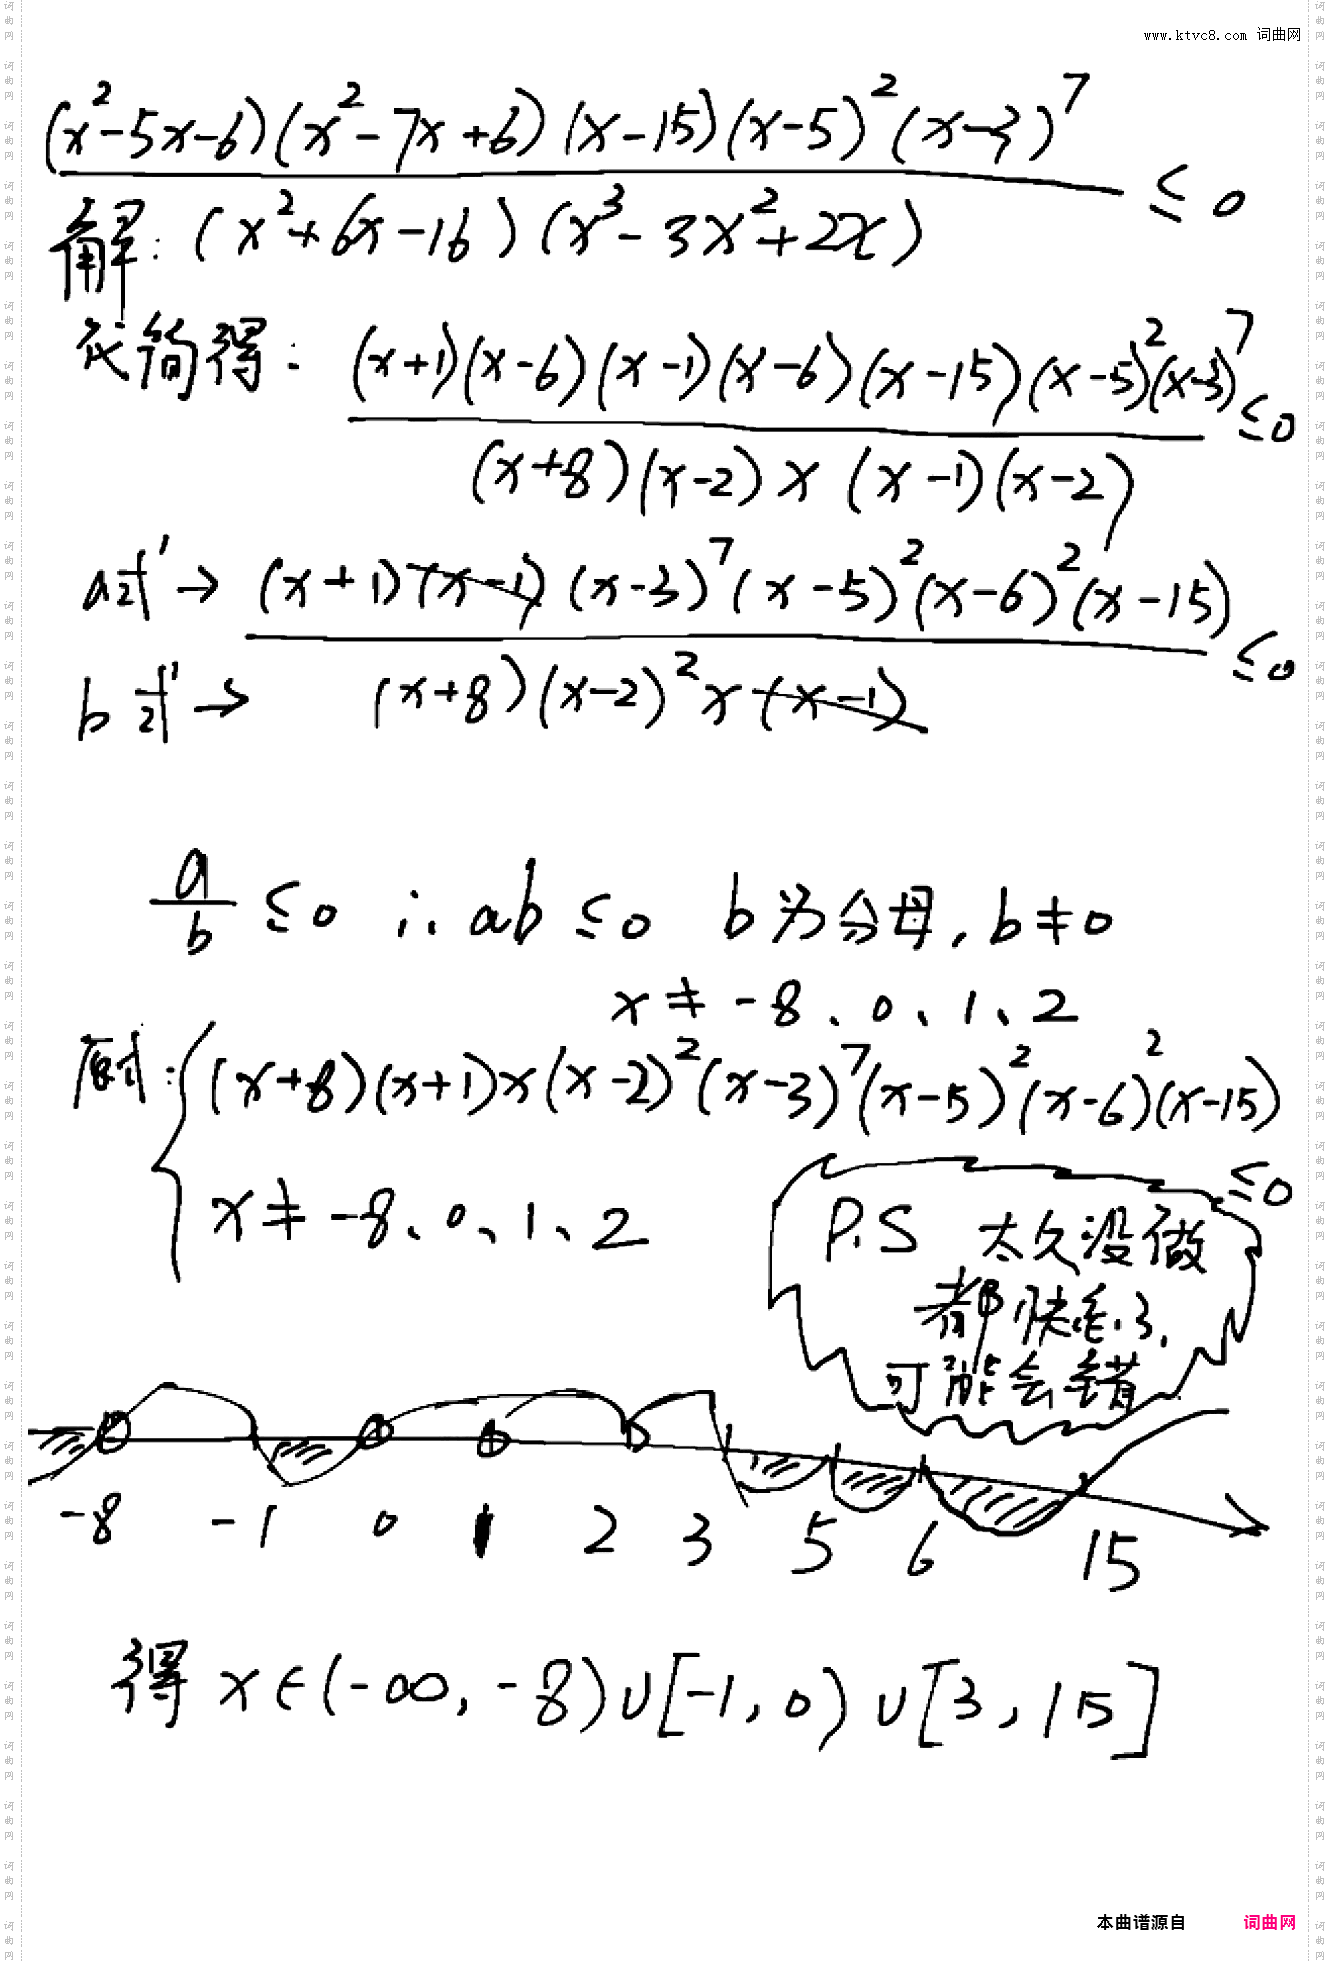 www.ktvc8.com 词曲网
(x²-5x-6)(x²-7x+6)(x-15)(x-5)²(x-3)⁷ ≤0
解: (x²+6x-16)(x³-3x²+2x)
化简得: (x+1)(x-6)(x-1)(x-6)(x-15)(x-5)²(x-3)⁷ ≤0
(x+8)(x-2)x(x-1)(x-2)
a式→ (x+1)(x-1)(x-3)⁷(x-5)²(x-6)²(x-15) ≤0
b式→ (x+8)(x-2)²x(x-1)
a/b ≤0 ∴ab≤0 b为分母,b≠0
x≠-8、0、1、2
原式: (x+8)(x+1)x(x-2)²(x-3)⁷(x-5)²(x-6)²(x-15)
≤0
x≠-8、0、1、2
P.S 太久没做
都快忘了,
可能会错
-8 -1 0 1 2 3 5 6 15
得x∈(-∞,-8)∪[-1,0)∪[3,15]
本曲谱源自 词曲网